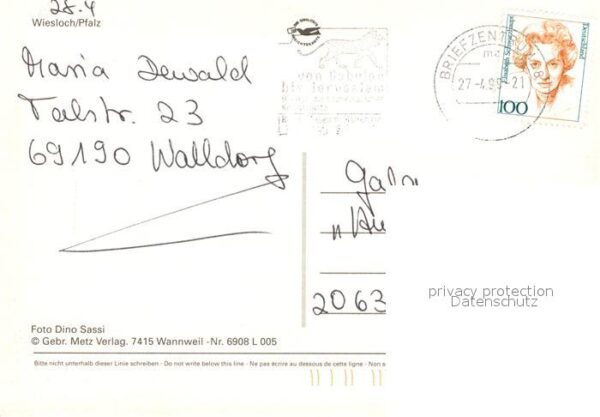 28.4
Wiesloch/Pfalz
Maria Dewald
Talstr. 23
69190 Walldorf
von Babylon
bis Jerusalem
BRIEFZENTRUM
27.-4.99-21
Elisabeth Schwarzhaupt
Deutschland
100
2063
privacy protection
Datenschutz
Foto Dino Sassi
© Gebr. Metz Verlag. 7415 Wannweil -Nr. 6908 L 005
Bitte nicht unterhalb dieser Linie schreiben - Do not write below this line - Ne pas écrire au dessous de cette ligne - Non s